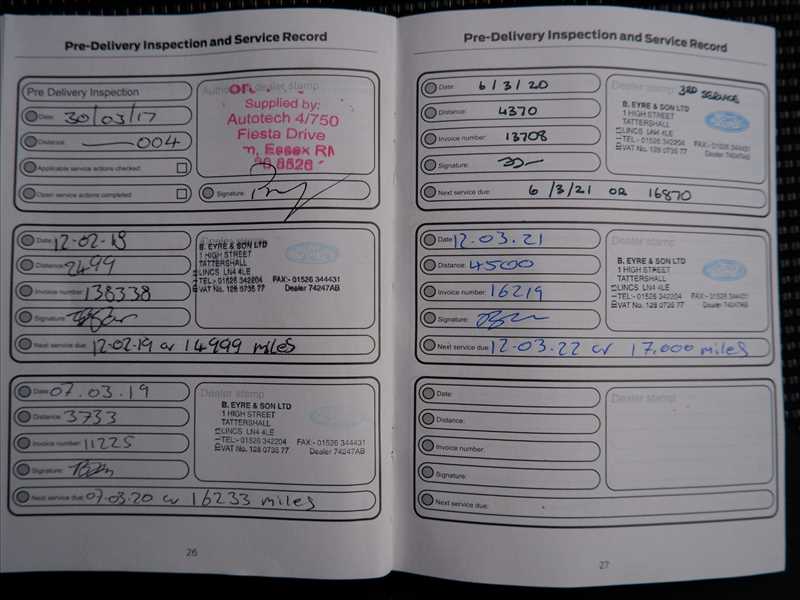 Pre-Delivery Inspection and Service Record
Pre Delivery Inspection
Date: 30/03/17
Distance: 004
Applicable service actions checked
Open service actions completed
Authorised dealer stamp
Supplied by:
Autotech 4/750
Fiesta Drive
Essex RM
Signature:
Date: 12-02-18
Distance: 2499
Invoice number: 138338
Signature:
Next service due: 12-02-19 or 14999 miles
Dealer stamp
B. EYRE & SON LTD
1 HIGH STREET
TATTERSHALL
LINCS LN4 4LE
TEL:- 01526 342204 FAX:- 01526 344431
VAT No. 128 0735 77 Dealer 74247AB
Ford
Date: 07.03.19
Distance: 3733
Invoice number: 11225
Signature:
Next service due: 07.03.20 or 16233 miles
Dealer stamp
B. EYRE & SON LTD
1 HIGH STREET
TATTERSHALL
LINCS LN4 4LE
TEL:- 01526 342204 FAX:- 01526 344431
VAT No. 128 0735 77 Dealer 74247AB
26
Pre-Delivery Inspection and Service Record
Date: 6/3/20
Distance: 4370
Invoice number: 13708
Signature:
Next service due: 6/3/21 OR 16870
Dealer stamp 3RD SERVICE
B. EYRE & SON LTD
1 HIGH STREET
TATTERSHALL
LINCS LN4 4LE
TEL:- 01526 342204 FAX:- 01526 344431
VAT No. 128 0735 77 Dealer 74247AB
Ford
Date: 12.03.21
Distance: 4500
Invoice number: 16219
Signature:
Next service due: 12.03.22 or 17,000 miles
Dealer stamp
B. EYRE & SON LTD
1 HIGH STREET
TATTERSHALL
LINCS LN4 4LE
TEL:- 01526 342204 FAX:- 01526 344431
VAT No. 128 0735 77 Dealer 74247AB
Ford
Date:
Distance:
Invoice number:
Signature:
Next service due:
Dealer stamp
27